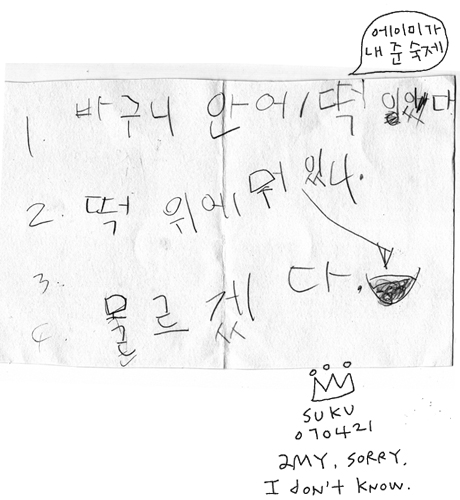 에이미가
내 준 숙제
1. 바구니 안에 떡 있었다
2. 떡 위에 뭐 있나.
3.
4. 몰르겠다.
SUKU
070421
2MY, SORRY.
I DON'T KNOW.